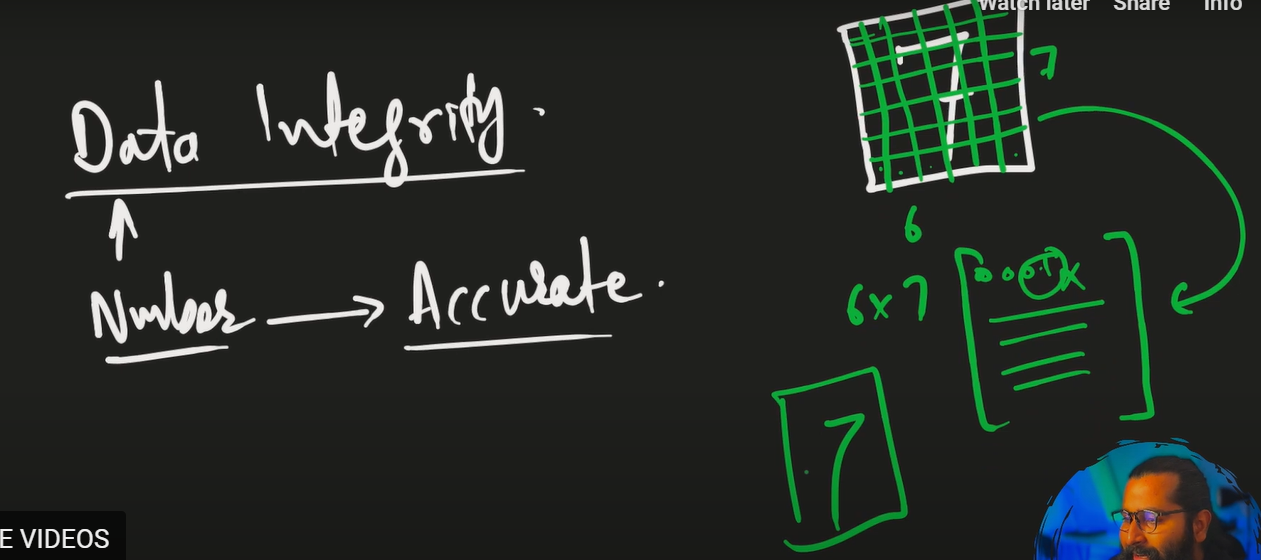 Watch later Share Info
Data Integrity.
Number → Accurate.
7
7
6
6 x 7
7
E VIDEOS